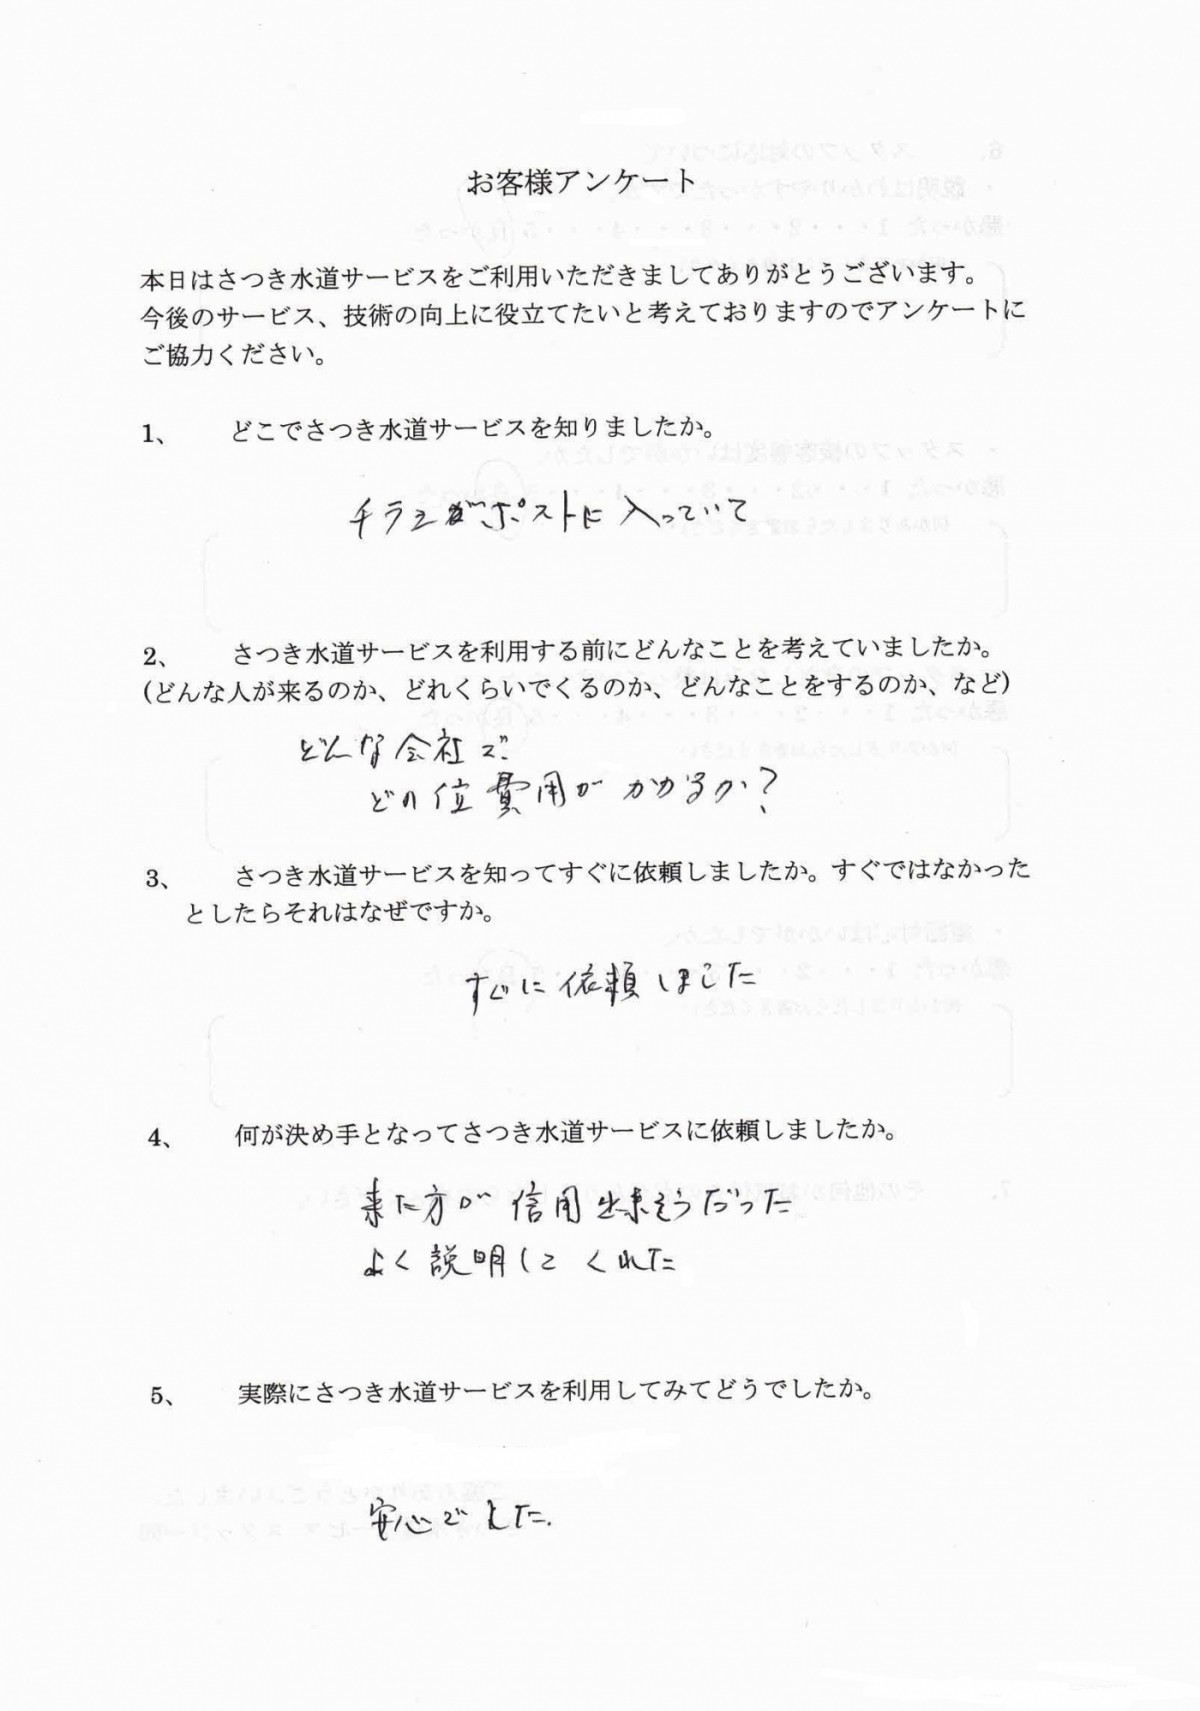 お客様アンケート
本日はさつき水道サービスをご利用いただきましてありがとうございます。
今後のサービス、技術の向上に役立てたいと考えておりますのでアンケートに
ご協力ください。
1、 どこでさつき水道サービスを知りましたか。
チラシがポストに入っていて
2、 さつき水道サービスを利用する前にどんなことを考えていましたか。
(どんな人が来るのか、どれくらいでくるのか、どんなことをするのか、など)
どんな会社で
どの位費用がかかるか?
3、 さつき水道サービスを知ってすぐに依頼しましたか。すぐではなかった
としたらそれはなぜですか。
すぐに依頼しました
4、 何が決め手となってさつき水道サービスに依頼しましたか。
来た方が信用出来そうだった
よく説明してくれた
5、 実際にさつき水道サービスを利用してみてどうでしたか。
安心でした.